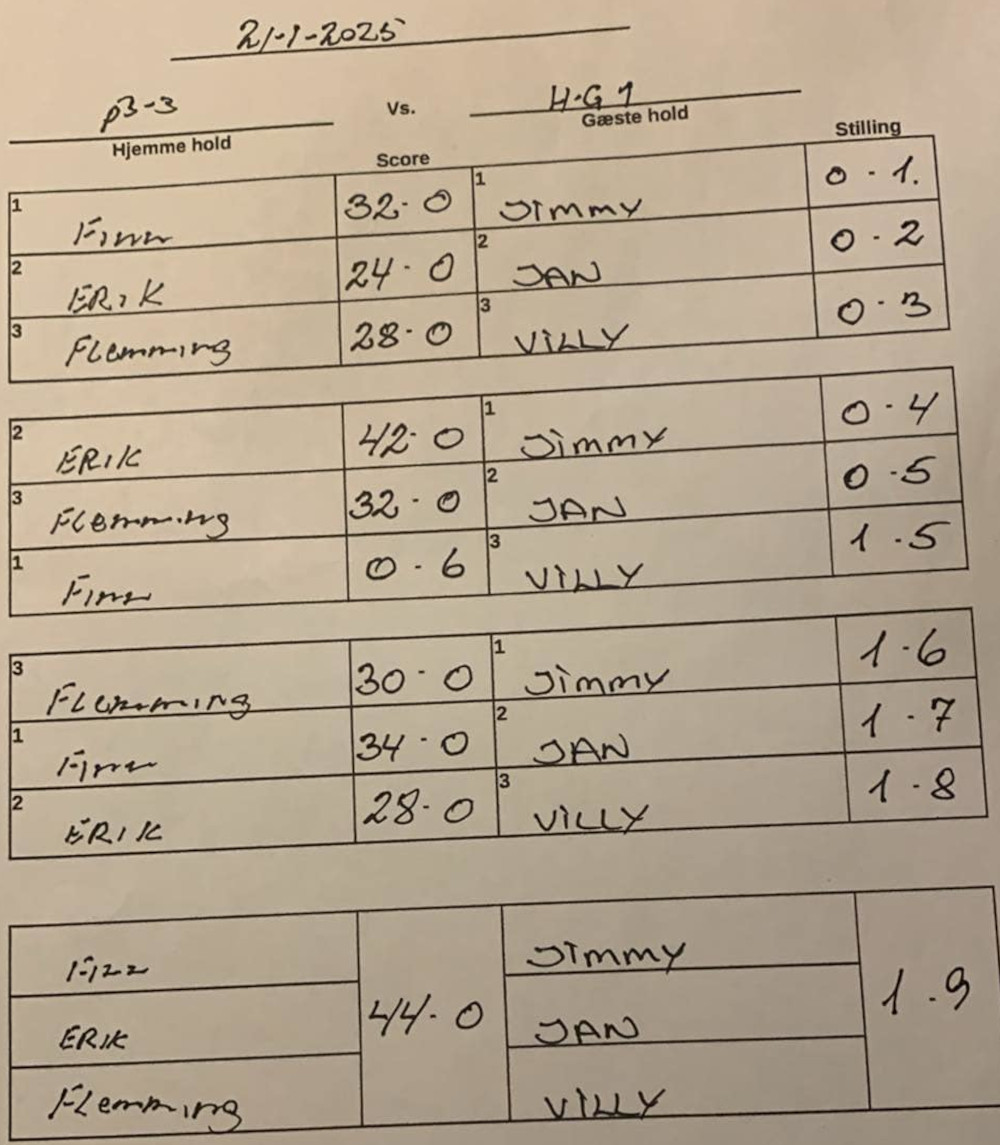 21-1-2025
P3-3 Vs. H-G 1
Hjemme hold Gæste hold
Score Stilling
1 Finn 32-0 1 JIMMY 0-1.
2 ERIK 24-0 2 JAN 0-2
3 Flemming 28-0 3 VILLY 0-3
2 ERIK 42-0 1 JIMMY 0-4
3 Flemming 32-0 2 JAN 0-5
1 Finn 0-6 3 VILLY 1-5
3 Flemming 30-0 1 JIMMY 1-6
1 Finn 34-0 2 JAN 1-7
2 ERIK 28-0 3 VILLY 1-8
Finn JIMMY
ERIK 44-0 JAN 1-9
Flemming VILLY